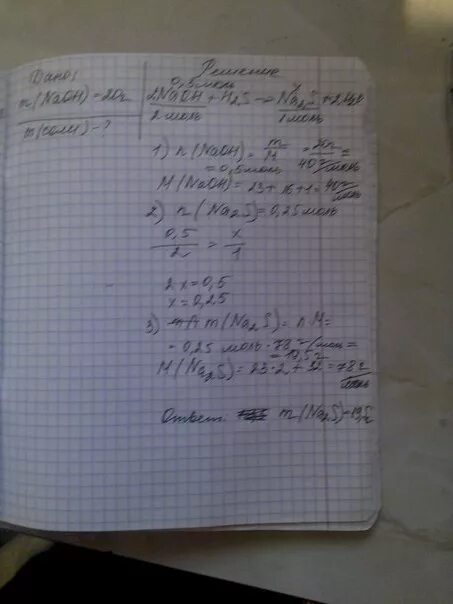 Дано:
m(NaOH) = 20г
m(соли) - ?
Решение
0,5моль x
2NaOH + H2S → Na2S + 2H2O
2 моль 1 моль
1) n(NaOH) = m/M = 20г / 40 г/моль =
= 0,5моль
M(NaOH) = 23 + 16 + 1 = 40 г/моль
2) n(Na2S) = 0,25 моль
0,5/2 = x/1
2x = 0,5
x = 0,25
3) m(Na2S) = n·M =
= 0,25 моль · 78 г/моль =
= 19,5 г
M(Na2S) = 23·2 + 32 = 78 г/моль
Ответ: m(Na2S) = 19,5г